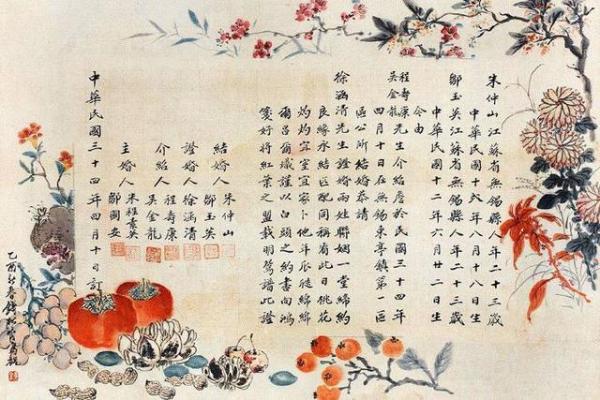 朱仲山江蘇省無錫縣人年二十三歲
中華民國十年八月十八日生
鄒玉英江蘇省無錫縣人年二十三歲
中華民國十二年六月廿二日生
今由
程壽康
吳金龍
先生介紹詹於民國三十四年
四月十日在無錫東亭鎮第一區
區公所結婚恭請
徐涵清先生證婚兩姓聯姻一堂締約
良緣永結匹配同稱看此日桃花
灼灼宜室宜家卜他年瓜瓞綿綿
爾昌爾熾謹以白頭之約書向鴻
箋好將紅葉之盟載明鴛譜此證
結婚人 朱仲山
鄒玉英
證婚人 徐涵清
介紹人 程壽康
吳金龍
主婚人 朱程景英
鄒國安
中華民國三十四年四月十日訂
乙酉新春